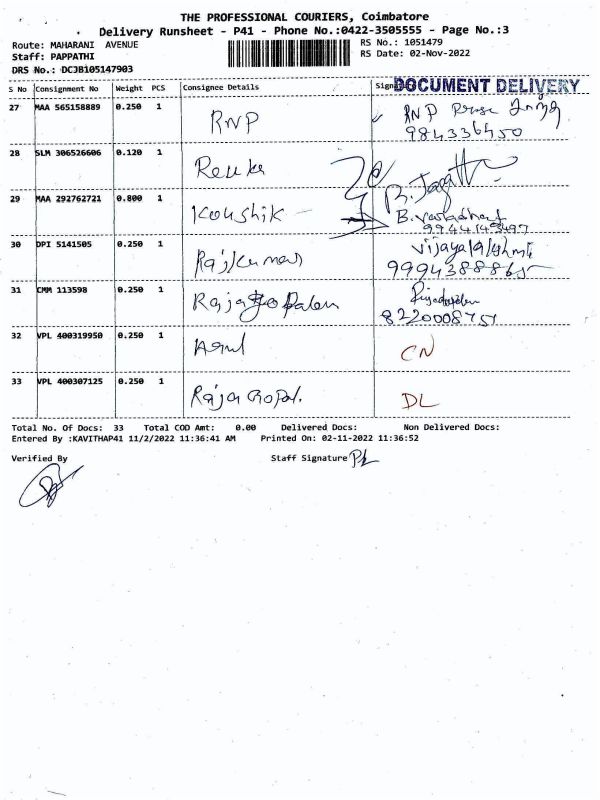 THE PROFESSIONAL COURIERS, Coimbatore
Delivery Runsheet - P41 - Phone No.:0422-3505555 - Page No.:3
Route: MAHARANI AVENUE
RS No.: 1051479
Staff: PAPPATHI
RS Date: 02-Nov-2022
DRS No.: DCJB105147903
S No Consignment No Weight PCS Consignee Details
DOCUMENT DELIVERY
27 MAA 565158889 0.250 1 RNP RNP
28 SLM 306526606 0.120 1 Renuka
29 MAA 292762721 0.800 1 Koushik
30 DPI 5141505 0.250 1 Rajkumar Vijayalakshmi
31 CMM 113598 0.250 1 Rajagopalan
8220008751
32 VPL 400319950 0.250 1 Arul CN
33 VPL 400307125 0.250 1 Raja Gopal. DL
Total No. Of Docs: 33 Total COD Amt: 0.00 Delivered Docs: Non Delivered Docs:
Entered By :KAVITHAP41 11/2/2022 11:36:41 AM Printed On: 02-11-2022 11:36:52
Verified By
Staff Signature